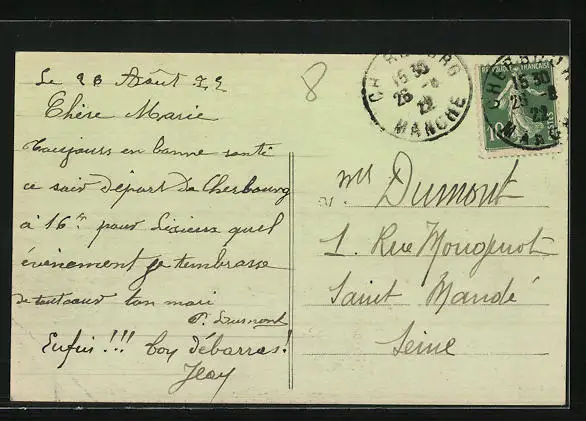 Le 26 Août 22
Chère Marie
Toujours en bonne santé
ce soir départ de Cherbourg
à 16 h pour Lisieux quel
événement je t'embrasse
de tout coeur ton mari
P. Dumont
Enfin !!! bon débarras!
Jeay
8
CHERBOURG
15 30
26 - 8
22
MANCHE
CHERBOURG
15 30
26 8
22
MANCHE
REPUBLIQUE FRANÇAISE
10
POSTES
Mme Dumont
1. Rue Mongenot
Saint Mandé
Seine